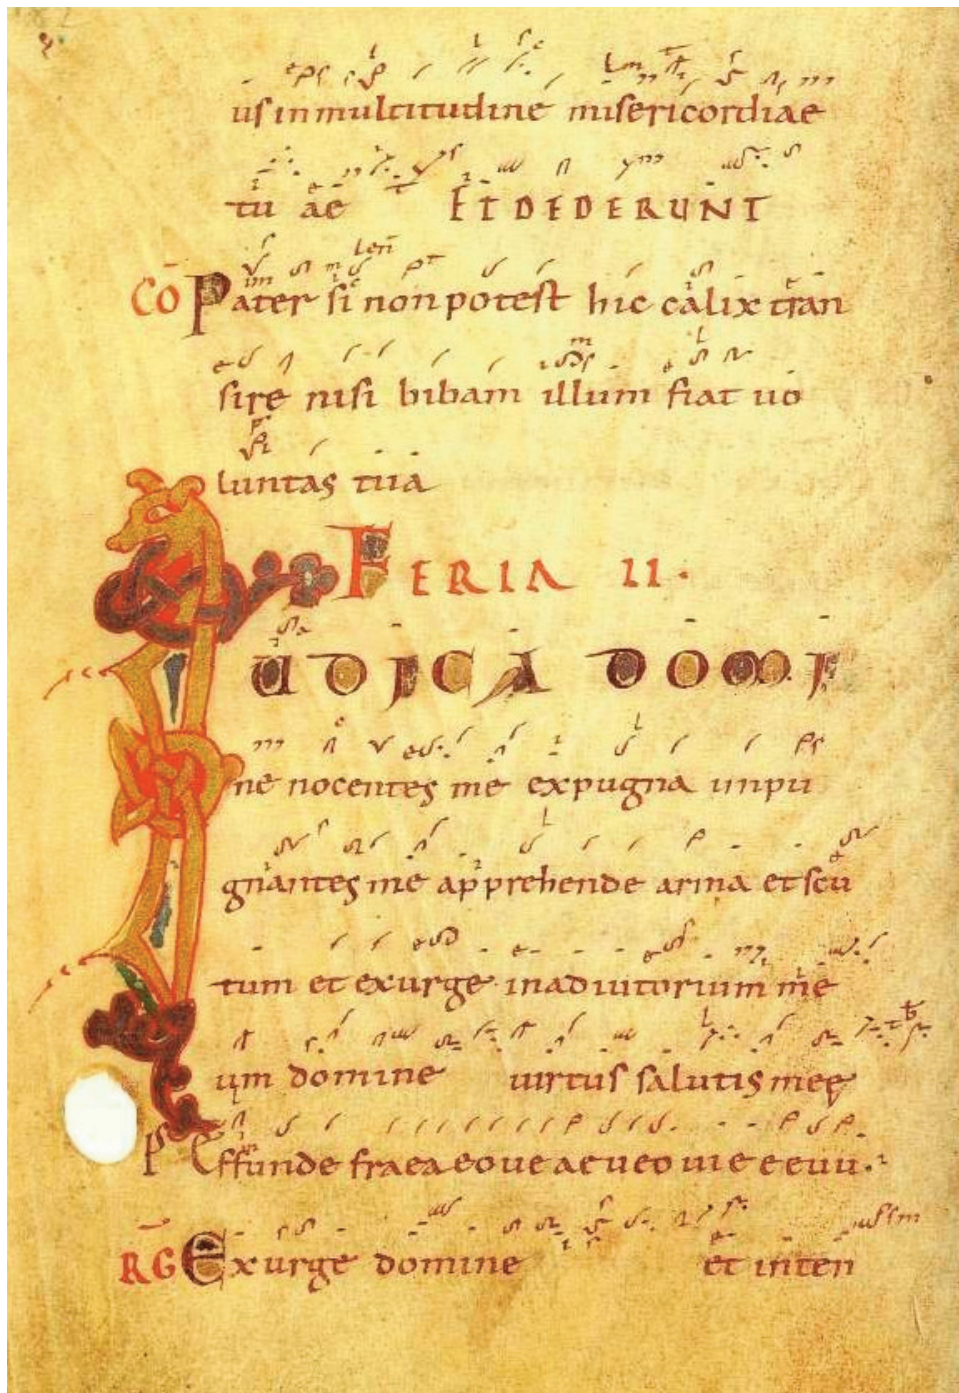 us in multitudine misericordiae
tuae ET DEDERUNT
CO Pater si non potest hic calix tran
sire nisi bibam illum fiat uo
luntas tua
FERIA II.
IUDICA DOMI
ne nocentes me expugna inpu
gnantes me apprehende arma et scu
tum et exurge in adiutorium me
um domine uirtus salutis meę
P Effunde fraea e o u e a e u e o u i e e e u u.
RG Exurge domine et inten